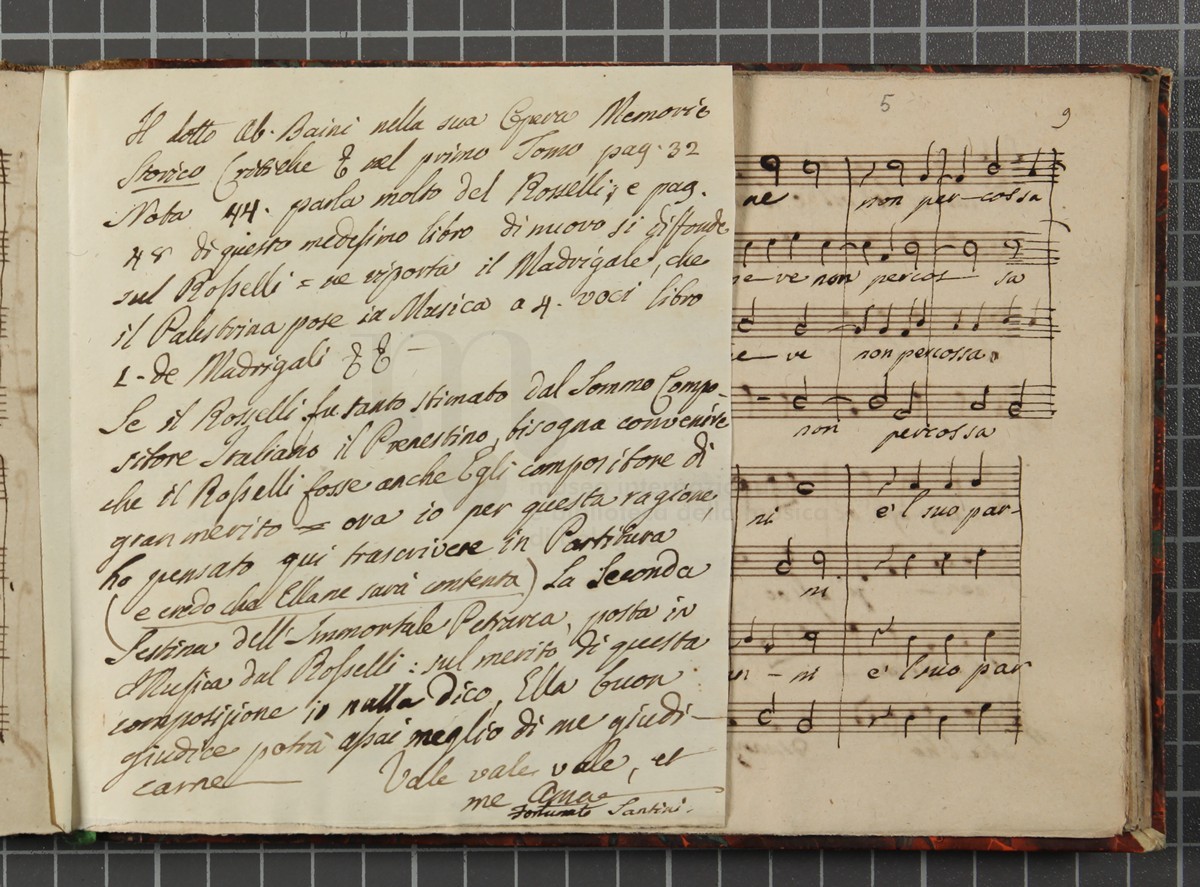 Il dotto Ab. Baini nella sua Opera Memorie
Storico Critiche & nel primo Tomo pag. 32
Nota 44. parla molto del Rosselli; e pag.
48 di questo medesimo libro di nuovo si diffonde
sul Rosselli = ne riporta il Madrigale, che
il Palestrina pose in Musica a 4. voci libro
1- de Madrigali & & —
Se il Rosselli fu tanto stimato dal Sommo Compo-
sitore Italiano il Prenestino, bisogna convenire
che il Rosselli fosse anche Egli compositore di
gran merito = ora io per questa ragione
ho pensato qui trascrivere in Partitura
(e credo che Ella ne sarà contenta) La Seconda
Sestina dell'Immortale Petrarca, posta in
Musica dal Rosselli: sul merito di questa
composizione io nulla dico, Ella buon
giudice potrà assai meglio di me giudi-
carne Vale vale vale, et
me Ama
Fortunato Santini.
5
9
ne non per-cossa
ne-ve non percos-sa
ne-ve non percossa.
non percossa
ni e'l suo par-
ni
an-ni e'l suo par
museo internazionale
e biblioteca della musica